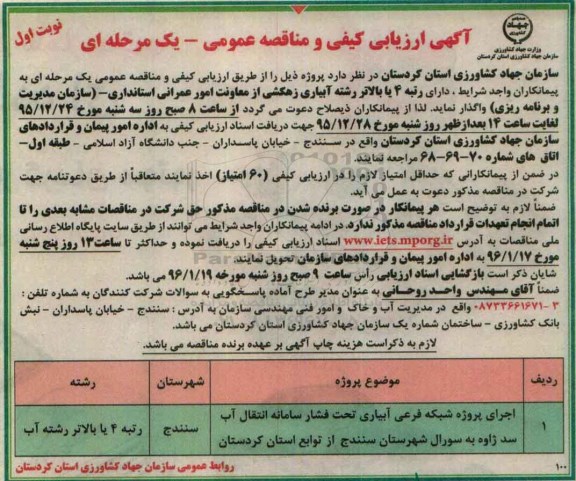 نوبت اول
آگهی ارزیابی کیفی و مناقصه عمومی – یک مرحله ای
وزارت جهاد کشاورزی
سازمان جهاد کشاورزی استان کردستان
سازمان جهاد کشاورزی استان کردستان در نظر دارد پروژه ذیل را از طریق ارزیابی کیفی و مناقصه عمومی یک مرحله ای به
پیمانکاران واجد شرایط ، دارای رتبه ۴ یا بالاتر رشته آبیاری زهکشی از معاونت امور عمرانی استانداری– (سازمان مدیریت
و برنامه ریزی) واگذار نماید. لذا از پیمانکاران ذیصلاح دعوت می گردد از ساعت ۸ صبح روز سه شنبه مورخ ۹۵/۱۲/۲۴
لغایت ساعت ۱۴ بعدازظهر روز شنبه مورخ ۹۵/۱۲/۲۸ جهت دریافت اسناد ارزیابی کیفی به اداره امور پیمان و قراردادهای
سازمان جهاد کشاورزی استان کردستان واقع در سنندج - خیابان پاسداران - جنب دانشگاه آزاد اسلامی - طبقه اول-
اتاق های شماره ۷۰-۶۹-۶۸ مراجعه نمایند.
در ضمن از پیمانکارانی که حداقل امتیاز لازم را در ارزیابی کیفی (۶۰ امتیاز) اخذ نمایند متعاقباً از طریق دعوتنامه جهت
شرکت در مناقصه مذکور دعوت به عمل می آید.
ضمناً لازم به توضیح است هر پیمانکار در صورت برنده شدن در مناقصه مذکور حق شرکت در مناقصات مشابه بعدی را تا
اتمام انجام تعهدات قرارداد مناقصه مذکور ندارد. در ادامه پیمانکاران واجد شرایط می توانند از طریق سایت پایگاه اطلاع رسانی
ملی مناقصات به آدرس www.iets.mporg.ir اسناد ارزیابی کیفی را دریافت نموده و حداکثر تا ساعت ۱۳ روز پنج شنبه
مورخ ۹۶/۱/۱۷ به اداره امور پیمان و قراردادهای سازمان تحویل نمایند.
شایان ذکر است بازگشایی اسناد ارزیابی رأس ساعت ۹ صبح روز شنبه مورخه ۹۶/۱/۱۹ می باشد.
ضمناً آقای مهندس واحد روحانی به عنوان مدیر طرح آماده پاسخگویی به سوالات شرکت کنندگان به شماره تلفن :
۳-۰۸۷۳۳۶۶۱۶۷۱ واقع در مدیریت آب و خاک و امور فنی مهندسی سازمان به آدرس : سنندج - خیابان پاسداران - نبش
بانک کشاورزی - ساختمان شماره یک سازمان جهاد کشاورزی استان کردستان می باشد.
لازم به ذکر است هزینه چاپ آگهی بر عهده برنده مناقصه می باشد.
ردیف موضوع پروژه شهرستان رشته
۱ اجرای پروژه شبکه فرعی آبیاری تحت فشار سامانه انتقال آب سد ژاوه به سورال شهرستان سنندج از توابع استان کردستان سنندج رتبه ۴ یا بالاتر رشته آب
۱۰۰ روابط عمومی سازمان جهاد کشاورزی استان کردستان